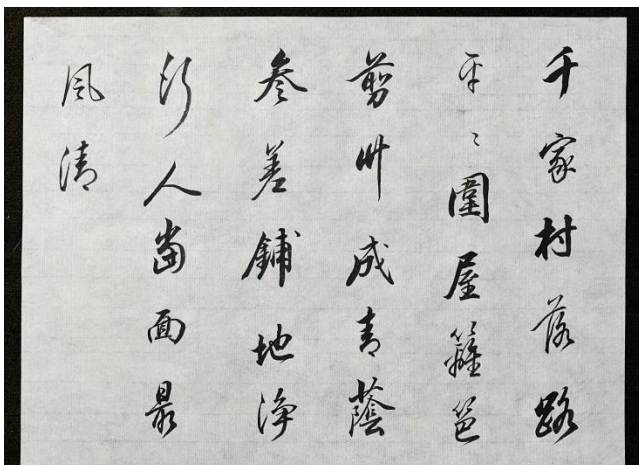 千家村落路
平〻圍屋籬笆
剪艸成青蔭
參差鋪地淨
行人當面最
風清